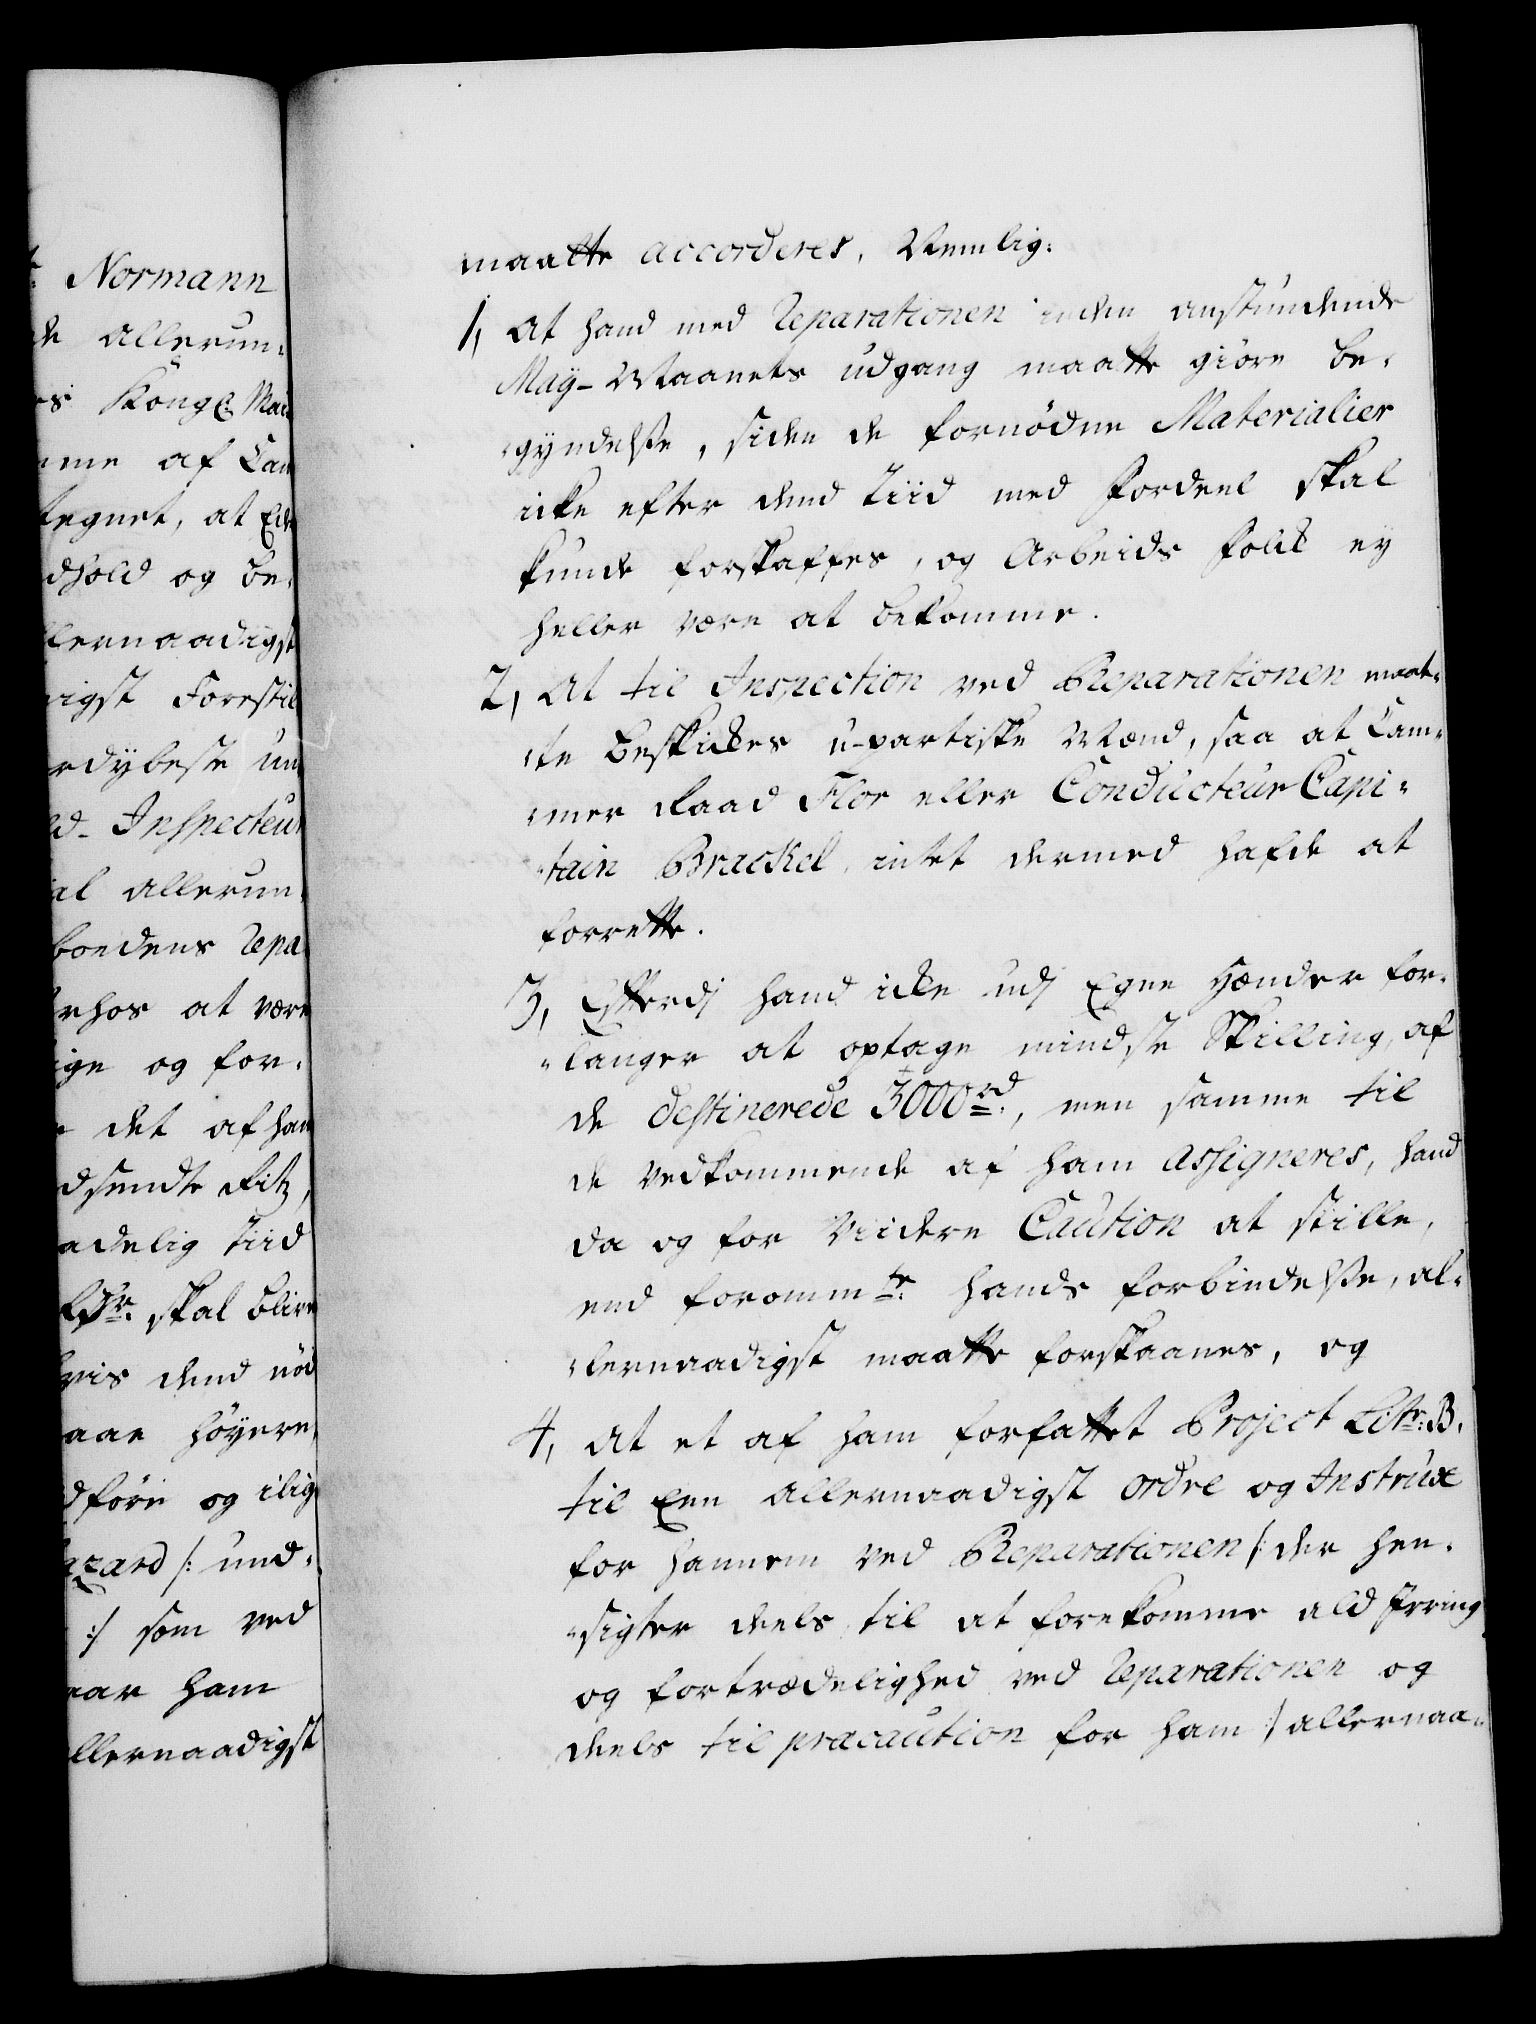 Normann
allerun-
Kongl: May
af Cam
tegnet, at
dhold og be-
llernaadigst
rigst Forestil
rdybeste un
Inspecteur
al allerun-
boedens Repa
rhos at være
ige og for-
det af ham
dsendte
adelig Tiid
skal blive
vis dend nød
aae høyere,
dføre og
azard /: und-
:/ som ved
ham
llernaadigst
maatte accorderes, Nemlig:
1, At hand med Reparationen inden anstundende
May-Maanets udgang maatte giøre be-
gyndelse, siden de fornødne Materialier
icke efter dend Tiid med Fordeel skal
kunde forskaffes, og Arbeids Folck ey
heller være at bekomme.
2, At til Inspection ved Reparationen maat-
te beskickes u-partiske Mænd, saa at Cam-
mer Raad Flor eller Conducteur Capi-
tain Brackel intet dermed hafde at
forrette.
3, Efterdj hand icke udj Egne Hænder for-
langer at optage mindste Skilling af
de destinerede 3000 rd:, men samme til
de vedkommende af ham assigneres, hand
da og for Viidere Caution at stille,
end foromm:te hands forbindelse, al-
lernaadigst maatte forskaanes, og
4, At et af ham forfattet Project Litr: B.
til Een allernaadigst ordre og Instrux
for hannem ved Reparationen /: der hen-
sigter deels til at forekomme ald Irring
og fortrædelighed ved Reparationen og
deels til præcaution for ham :/ allernaa-